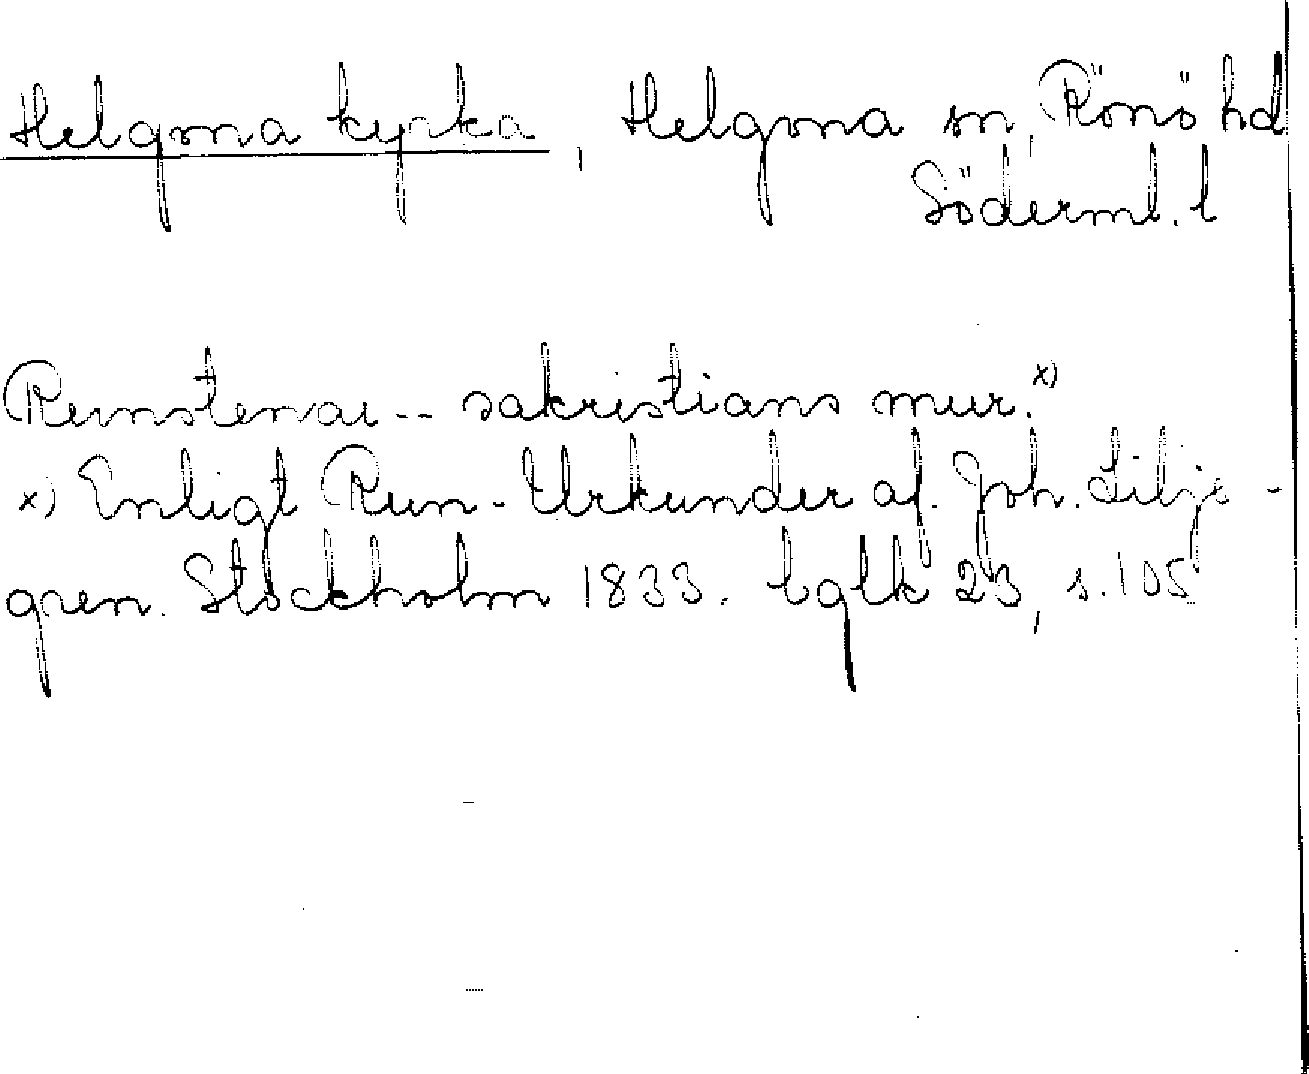 Helgona kyrka, Helgona sn, Rönö hd
Söderml. l
Runstenar -- sakristians mur. x)
x) Enligt Run-Urkunder af. Joh. Lilje-
gren. Stockholm 1833. bglk 23, s. 105